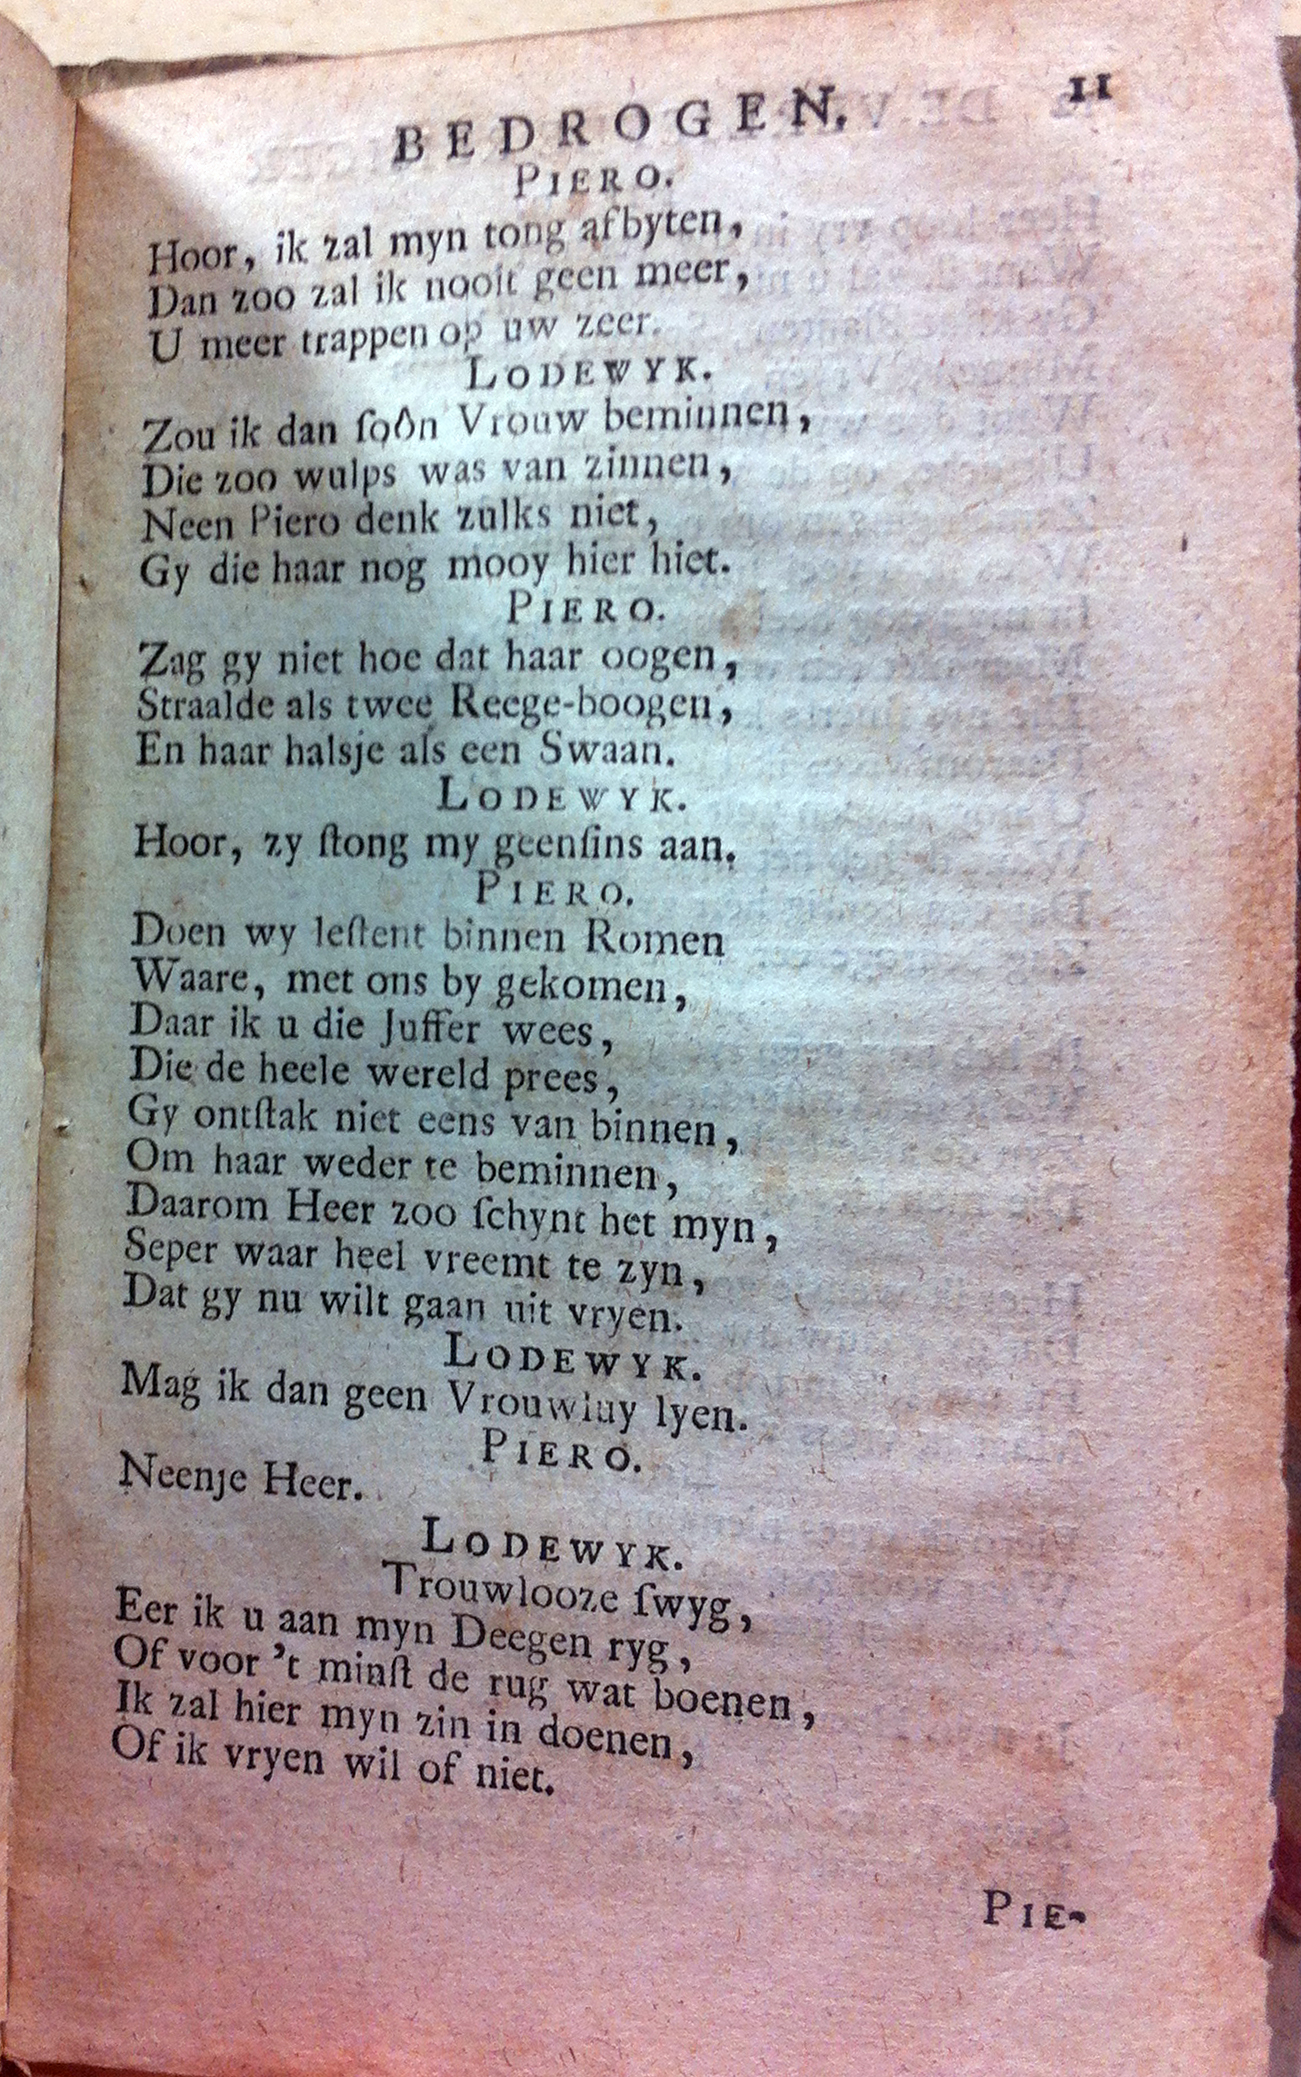 BEDROGEN. 11
PIERO.
Hoor, ik zal myn tong afbyten,
Dan zoo zal ik nooit geen meer,
U meer trappen op uw zeer.
LODEWYK.
Zou ik dan ſoôn Vrouw beminnen,
Die zoo wulps was van zinnen,
Neen Piero denk zulks niet,
Gy die haar nog mooy hier hiet.
PIERO.
Zag gy niet hoe dat haar oogen,
Straalde als twee Reege-boogen,
En haar halsje als een Swaan.
LODEWYK.
Hoor, zy ſtong my geenſins aan.
PIERO.
Doen wy leſtent binnen Romen
Waare, met ons by gekomen,
Daar ik u die Juffer wees,
Die de heele wereld prees,
Gy ontſtak niet eens van binnen,
Om haar weder te beminnen,
Daarom Heer zoo ſchynt het myn,
Seper waar heel vreemt te zyn,
Dat gy nu wilt gaan uit vryen.
LODEWYK.
Mag ik dan geen Vrouwluy lyen.
PIERO.
Neenje Heer.
LODEWYK.
Trouwlooze ſwyg,
Eer ik u aan myn Deegen ryg,
Of voor 't minſt de rug wat boenen,
Ik zal hier myn zin in doenen,
Of ik vryen wil of niet.
PIE-